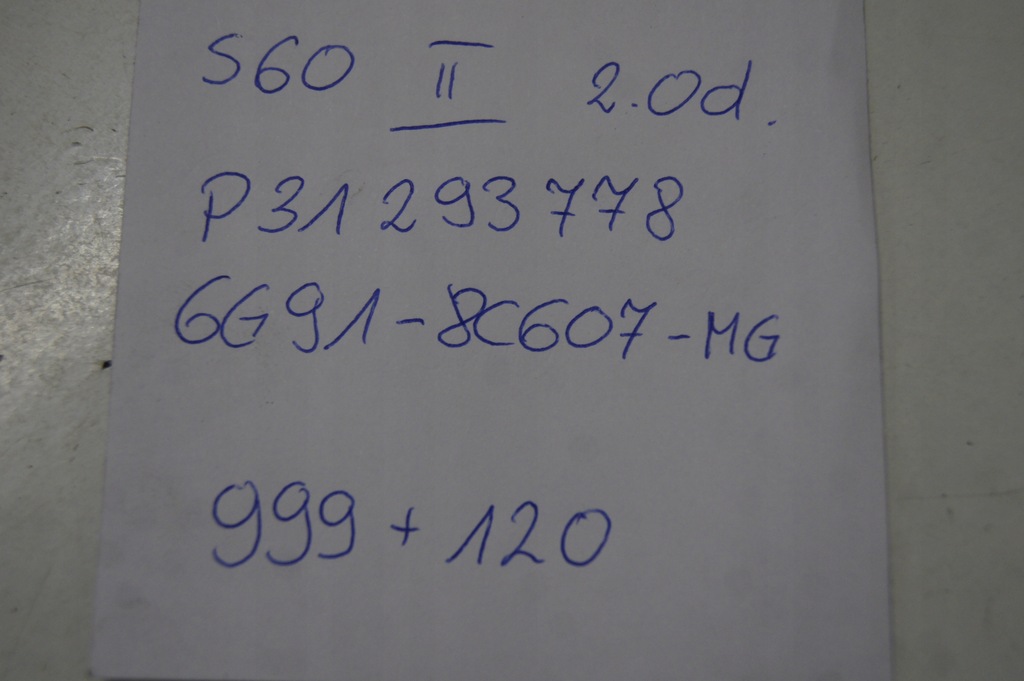 S60 II 2.0d.
P31293778
6G91-8C607-MG
999 + 120